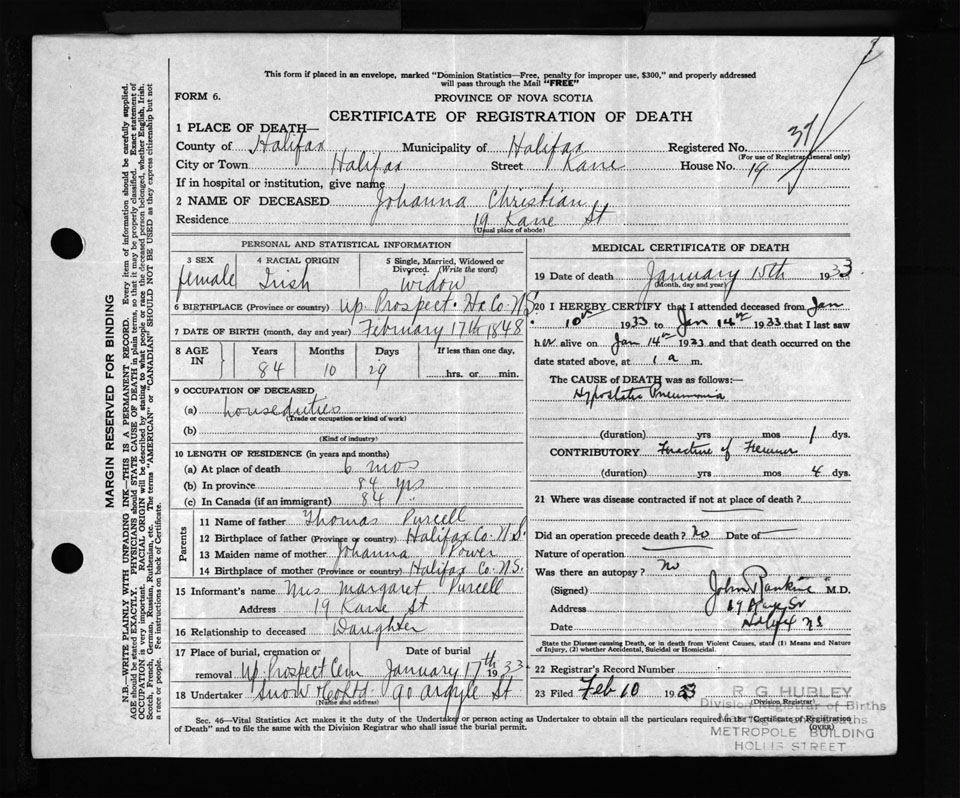 This form if placed in an envelope, marked "Dominion Statistics—Free, penalty for improper use, $300," and properly addressed
will pass through the Mail "FREE"
FORM 6.
PROVINCE OF NOVA SCOTIA
CERTIFICATE OF REGISTRATION OF DEATH
1 PLACE OF DEATH—
County of Halifax Municipality of Halifax Registered No. 37
(For use of Registrar General only)
City or Town Halifax Street Kane House No. 19
If in hospital or institution, give name
2 NAME OF DECEASED Johanna Christian
Residence 19 Kane St
(Usual place of abode)
PERSONAL AND STATISTICAL INFORMATION
3 SEX 4 RACIAL ORIGIN 5 Single, Married, Widowed or
Divorced. (Write the word)
female Irish widow
6 BIRTHPLACE (Province or country) Up. Prospect. Hx Co. N.S.
7 DATE OF BIRTH (month, day and year) February 17th, 1848
8 AGE IN Years Months Days If less than one day,
84 10 29 hrs. or min.
9 OCCUPATION OF DECEASED
(a) houseduties
(Trade or occupation or kind of work)
(b)
(Kind of industry)
10 LENGTH OF RESIDENCE (in years and months)
(a) At place of death 6 mos
(b) In province 84 yrs
(c) In Canada (if an immigrant) 84 "
Parents
11 Name of father Thomas Purcell
12 Birthplace of father (Province or country) Halifax Co. N.S.
13 Maiden name of mother Johanna Power
14 Birthplace of mother (Province or country) Halifax Co. N.S.
15 Informant's name Mrs Margaret Purcell
Address 19 Kane St
16 Relationship to deceased Daughter
17 Place of burial, cremation or Date of burial
removal Up. Prospect Cem January 17th 1933
18 Undertaker Snow & Co Ltd 90 Argyle St
(Name and address)
MEDICAL CERTIFICATE OF DEATH
19 Date of death January 15th 1933
(Month, day and year)
20 I HEREBY CERTIFY that I attended deceased from Jan
10th 1933 to Jan 14th 1933 that I last saw
her alive on Jan 14th 1933 and that death occurred on the
date stated above, at 1 a m.
The CAUSE of DEATH was as follows:—
Hypostatic Pneumonia
(duration) yrs mos 1 dys.
CONTRIBUTORY Fracture of Femur
(duration) yrs mos 4 dys.
21 Where was disease contracted if not at place of death?
Did an operation precede death? No Date of
Nature of operation
Was there an autopsy? No
(Signed) John Rankine M.D.
Address
Date Halifax NS
State the Disease causing Death, or in death from Violent Causes, state (1) Means and Nature
of Injury, (2) whether Accidental, Suicidal or Homicidal.
22 Registrar's Record Number
23 Filed Feb 10 1933
(Division Registrar)
R. G. HUBLEY
Division Registrar of Births
Marriages & Deaths
METROPOLE BUILDING
HOLLIS STREET
Sec. 46—Vital Statistics Act makes it the duty of the Undertaker or person acting as Undertaker to obtain all the particulars required in the "Certificate of Registration
of Death" and to file the same with the Division Registrar who shall issue the burial permit.
(OVER)
MARGIN RESERVED FOR BINDING
N.B.—WRITE PLAINLY WITH UNFADING INK—THIS IS A PERMANENT RECORD. Every item of information should be carefully supplied.
AGE should be stated EXACTLY. PHYSICIANS should STATE CAUSE OF DEATH in plain terms, so that it may be properly classified. Exact statement of
OCCUPATION is very important. RACIAL ORIGIN will be described by stating to what people or race the deceased person belonged, whether English, Irish,
Scotch, French, German, Russian, Ruthenian, etc. The terms "AMERICAN" or "CANADIAN" SHOULD NOT BE USED as they express citizenship but not
a race or people. See instructions on back of Certificate.